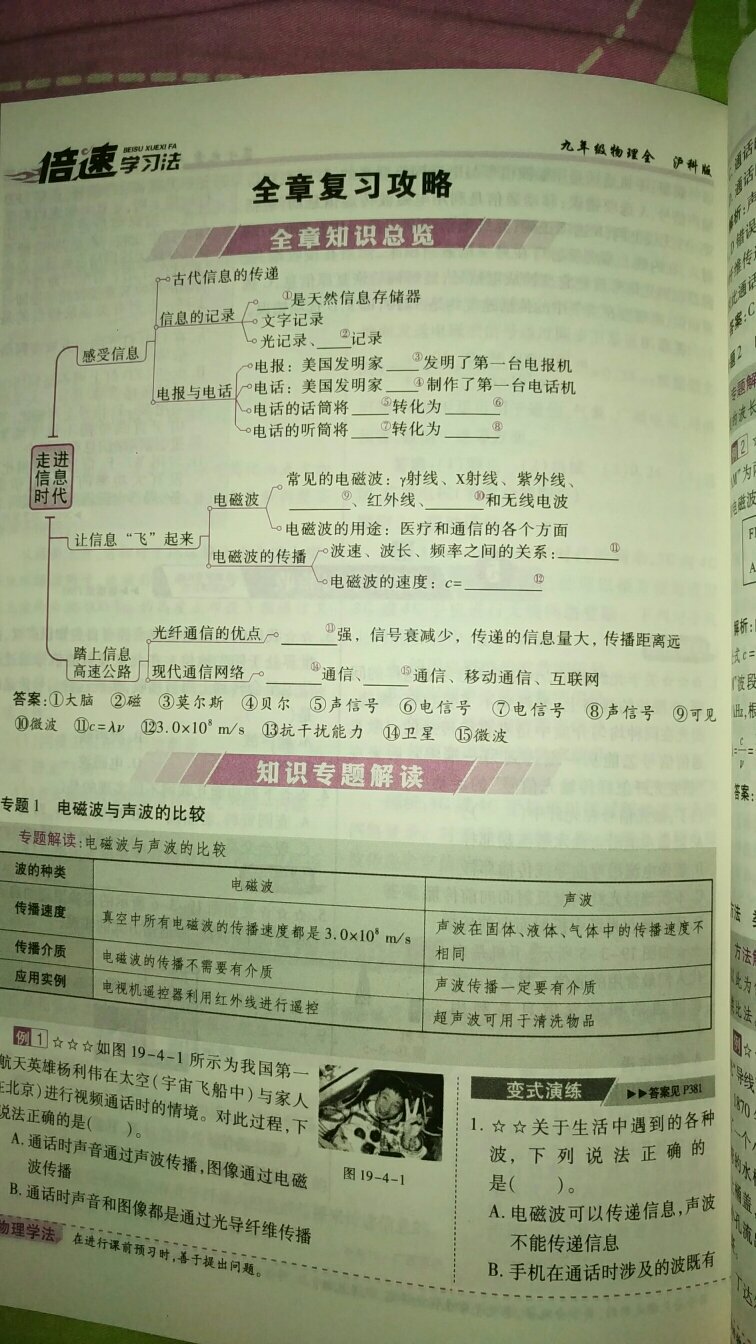 倍速学习法
BEISU XUEXI FA
九年级物理全 沪科版
全章复习攻略
全章知识总览
古代信息的传递
信息的记录
____①是天然信息存储器
文字记录
光记录、____②记录
感受信息
电报与电话
电报：美国发明家____③发明了第一台电报机
电话：美国发明家____④制作了第一台电话机
电话的话筒将____⑤转化为______⑥
电话的听筒将____⑦转化为______⑧
走进信息时代
让信息“飞”起来
电磁波
常见的电磁波：γ射线、X射线、紫外线、
________⑨、红外线、______⑩和无线电波
电磁波的用途：医疗和通信的各个方面
电磁波的传播
波速、波长、频率之间的关系：______⑪
电磁波的速度：c=________⑫
踏上信息高速公路
光纤通信的优点
______⑬强，信号衰减少，传递的信息量大，传播距离远
现代通信网络
______⑭通信、_____⑮通信、移动通信、互联网
答案：①大脑 ②磁 ③莫尔斯 ④贝尔 ⑤声信号 ⑥电信号 ⑦电信号 ⑧声信号 ⑨可见
⑩微波 ⑪c=λν ⑫3.0×10⁸ m/s ⑬抗干扰能力 ⑭卫星 ⑮微波
知识专题解读
专题1 电磁波与声波的比较
专题解读：电磁波与声波的比较
波的种类 电磁波 声波
传播速度 真空中所有电磁波的传播速度都是 3.0×10⁸ m/s 声波在固体、液体、气体中的传播速度不
相同
传播介质 电磁波的传播不需要有介质 声波传播一定要有介质
应用实例 电视机遥控器利用红外线进行遥控 超声波可用于清洗物品
例1 ☆☆☆如图19-4-1所示为我国第一
航天英雄杨利伟在太空(宇宙飞船中)与家人
在北京)进行视频通话时的情境。对此过程，下
说法正确的是( )。
A.通话时声音通过声波传播，图像通过电磁
波传播
B.通话时声音和图像都是通过光导纤维传播
图19-4-1
变式演练
▶▶答案见P381
1. ☆☆关于生活中遇到的各种
波，下列说法正确的
是( )。
A.电磁波可以传递信息，声波
不能传递信息
B.手机在通话时涉及的波既有
物理学法 在进行课前预习时，善于提出问题。